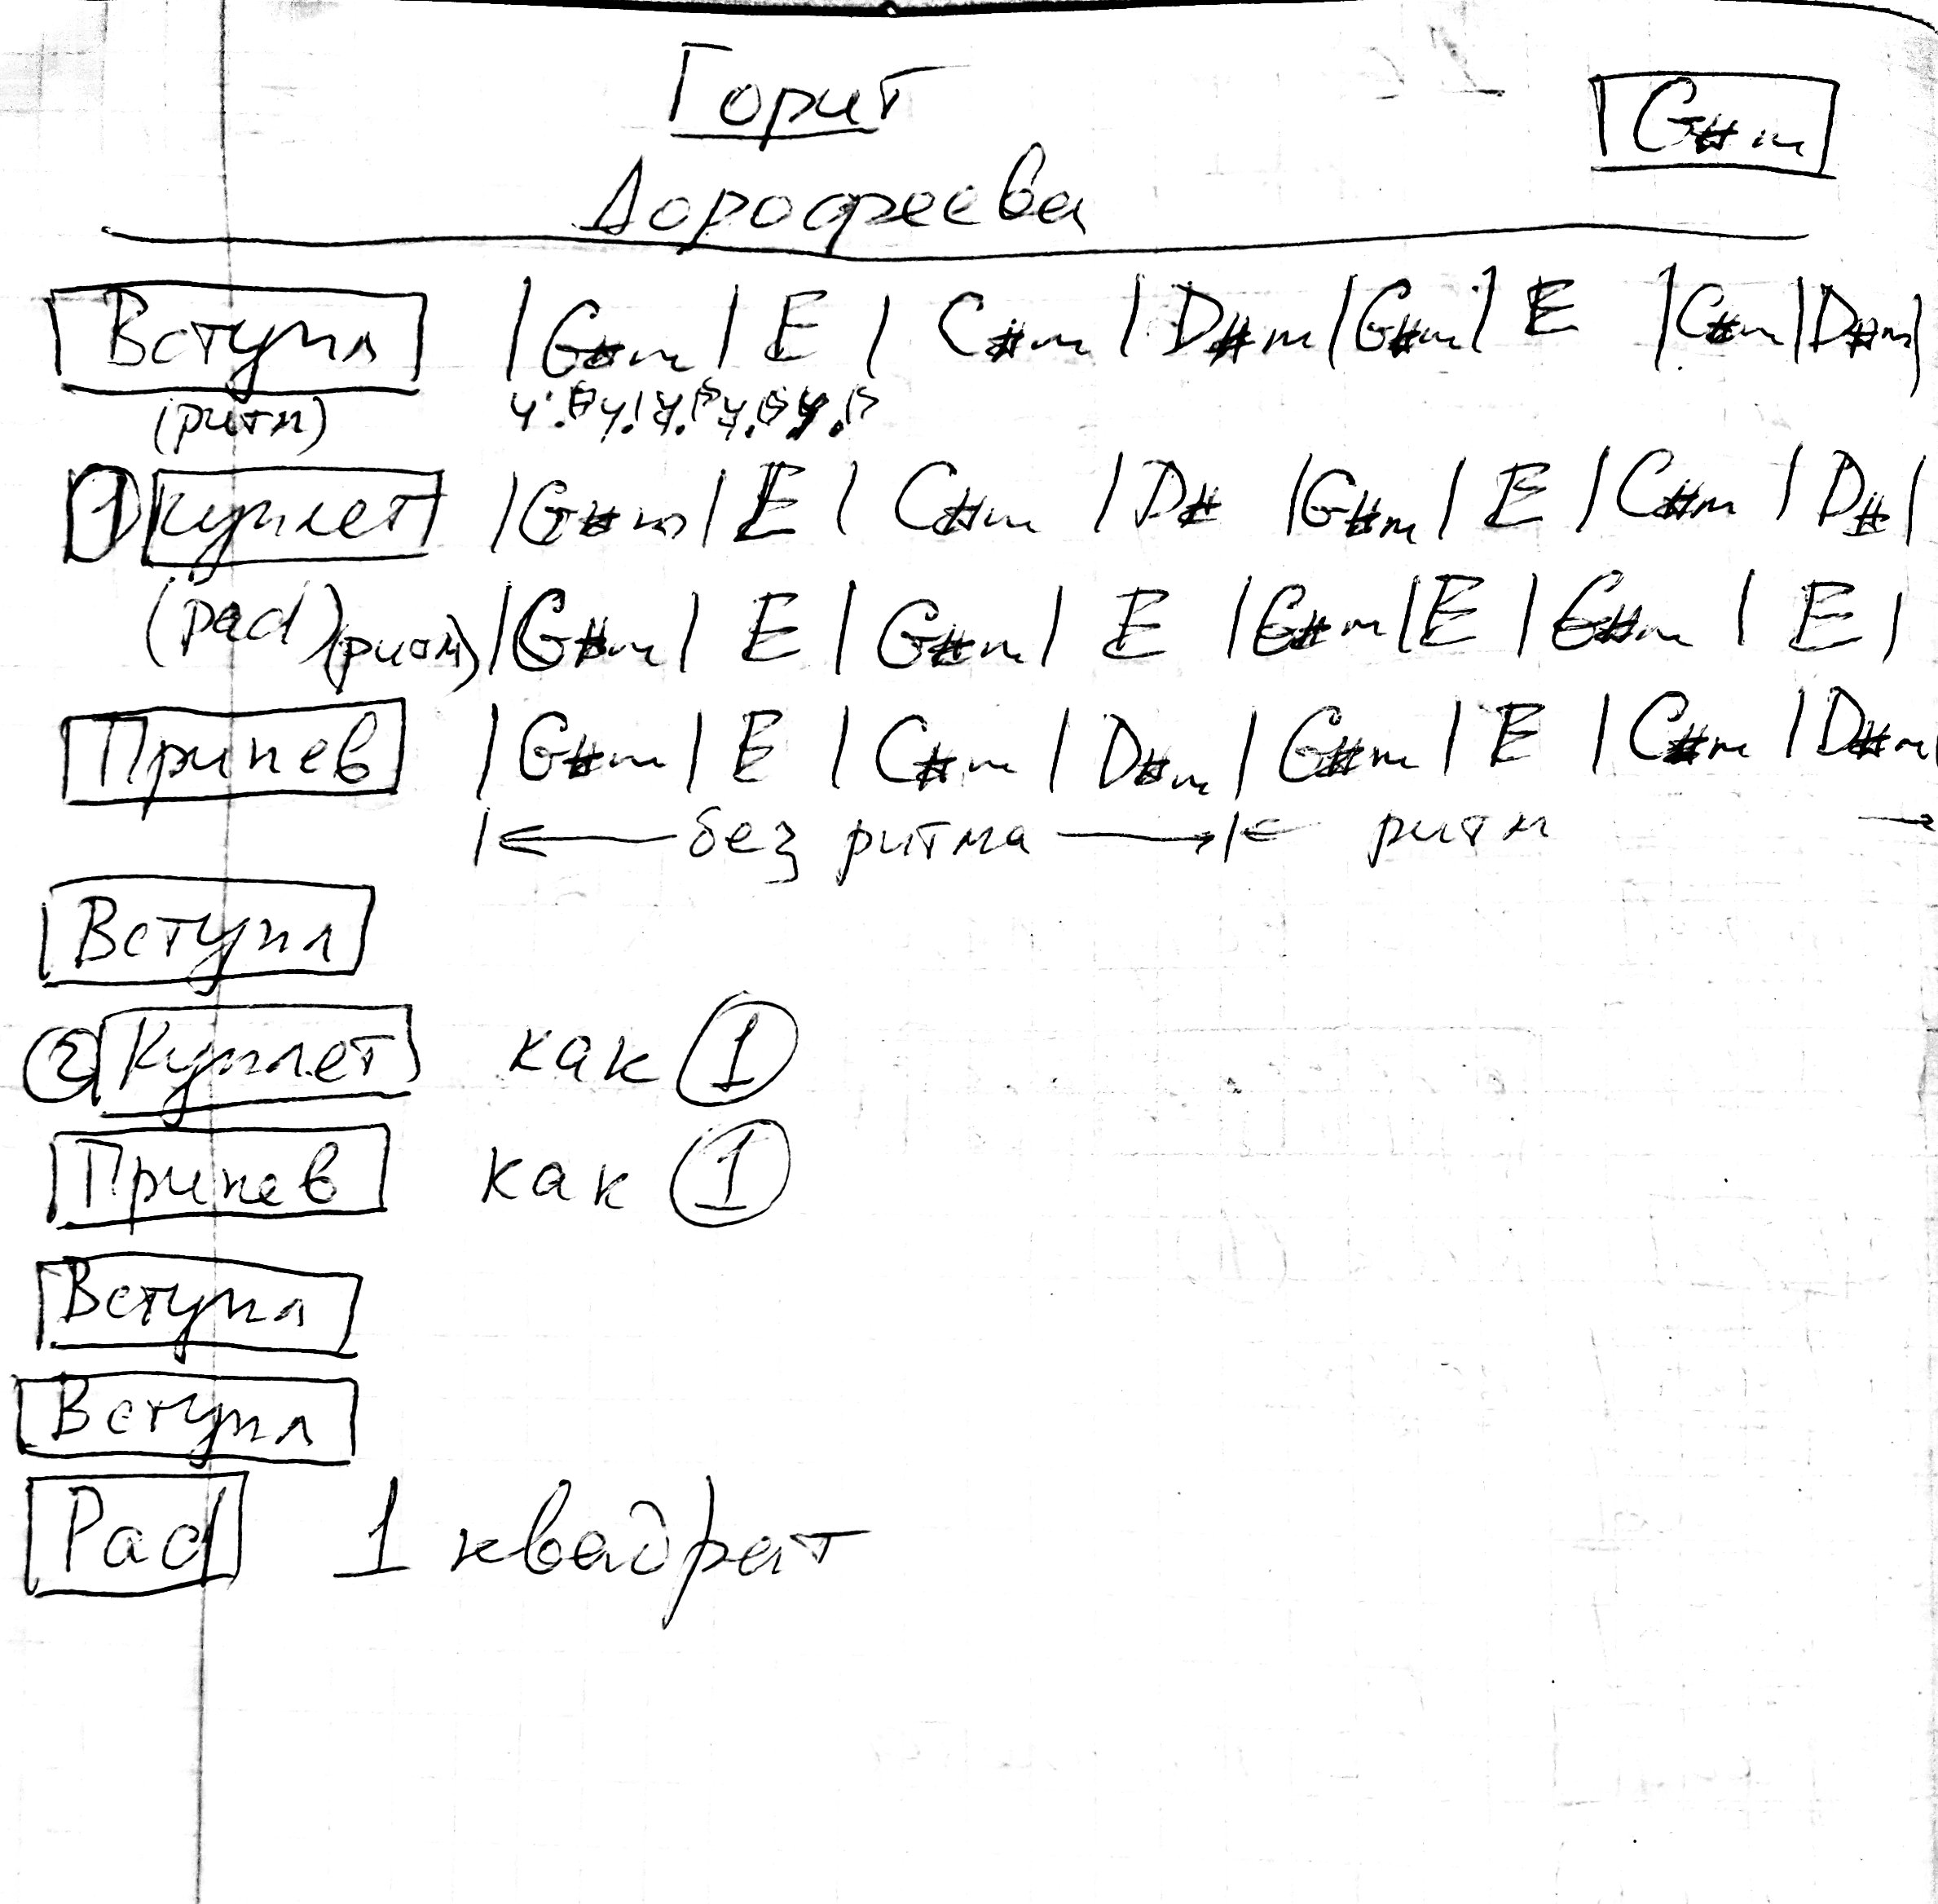 Горит
G#m
Дорофеева
Вступл |G#m| E | C#m | D#m |G#m| E |C#m|D#m|
(ритм)
1 Куплет |G#m| E | C#m | D# |G#m| E | C#m | D#|
(pad) (ритм) |G#m| E | G#m| E |G#m|E | G#m | E |
Припев |G#m| E | C#m | D#m | G#m | E | C#m | D#m
|← без ритма →|← ритм →
Вступл
2 Куплет как 1
Припев как 1
Вступл
Вступл
Pad 1 квадрат